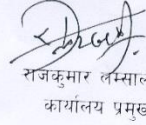 राजकुमार लम्साल
कार्यालय प्रमुख